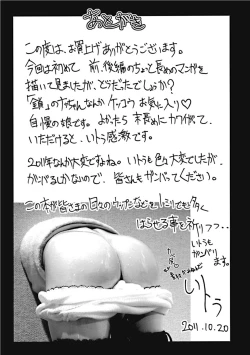 あとがき
この度は、お買上げありがとうございます。
今回は初めて前、後編のちょっと長めのマンガを
描いて見ましたが、どうだったでしょうか?
お気に入り♡
自慢の娘です。よかったら末長めにカワイがって
いただけると、感激です。
2011年なんか大変ですね。いトうも色々大変でしたが、
ガンバるしかないので、皆さんもガンバってください。
この本が皆さまの日々の
はらせる事を祈りつつ..
いトうも
ガンバリ
ます。
2011.10.20